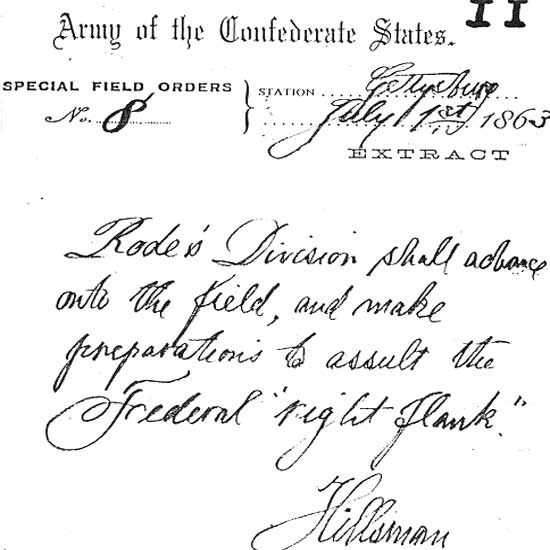 II
Army of the Confederate States.
SPECIAL FIELD ORDERS
No. 8
STATION Gettysburg
July 1st 1863
EXTRACT
Rode's Division shall advance
onto the field, and make
preparations to assult the
Frederal "right flank."
Hillsman